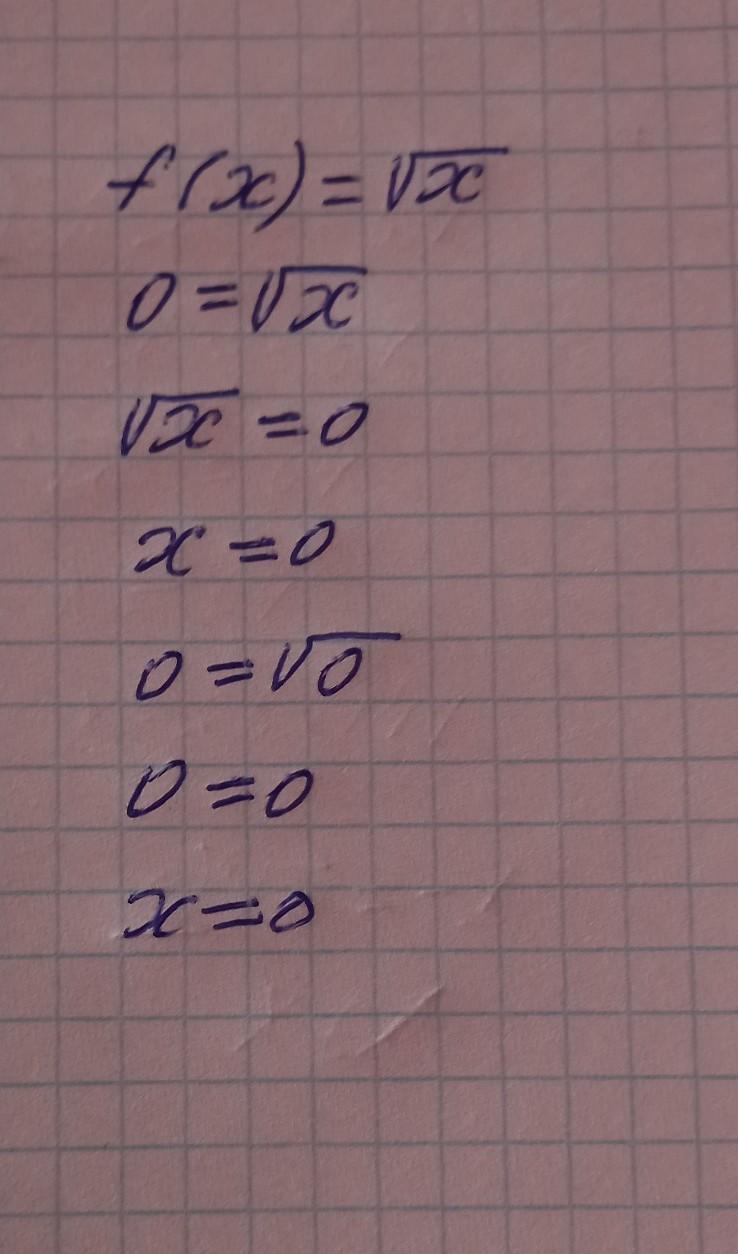 f(x) = √x
0 = √x
√x = 0
x = 0
0 = √0
0 = 0
x = 0